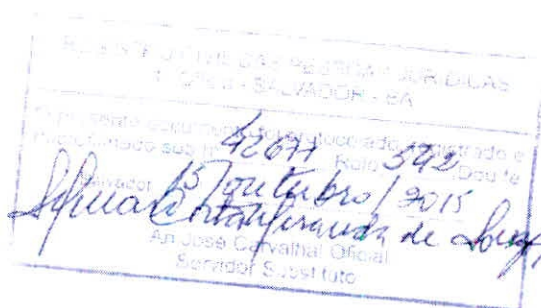 REGISTRO CIVIL DAS PESSOAS JURIDICAS
1º Ofício - SALVADOR - BA
presente documento foi protocolado registrado e
sob nº 42671 Rolo 592 Dou fe
Salvador 15 outubro / 2015
de
An José Carvalhal Oficial
Servidor Substituto